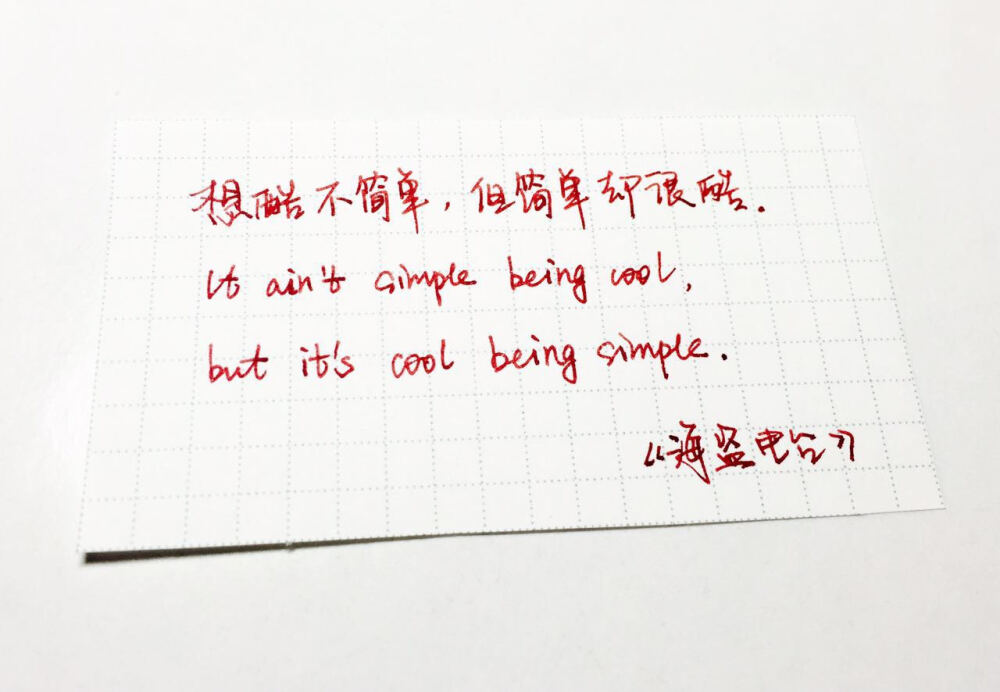 想酷不简单，但简单却很酷.
It ain't simple being cool,
but it's cool being simple.
《海盗电台》